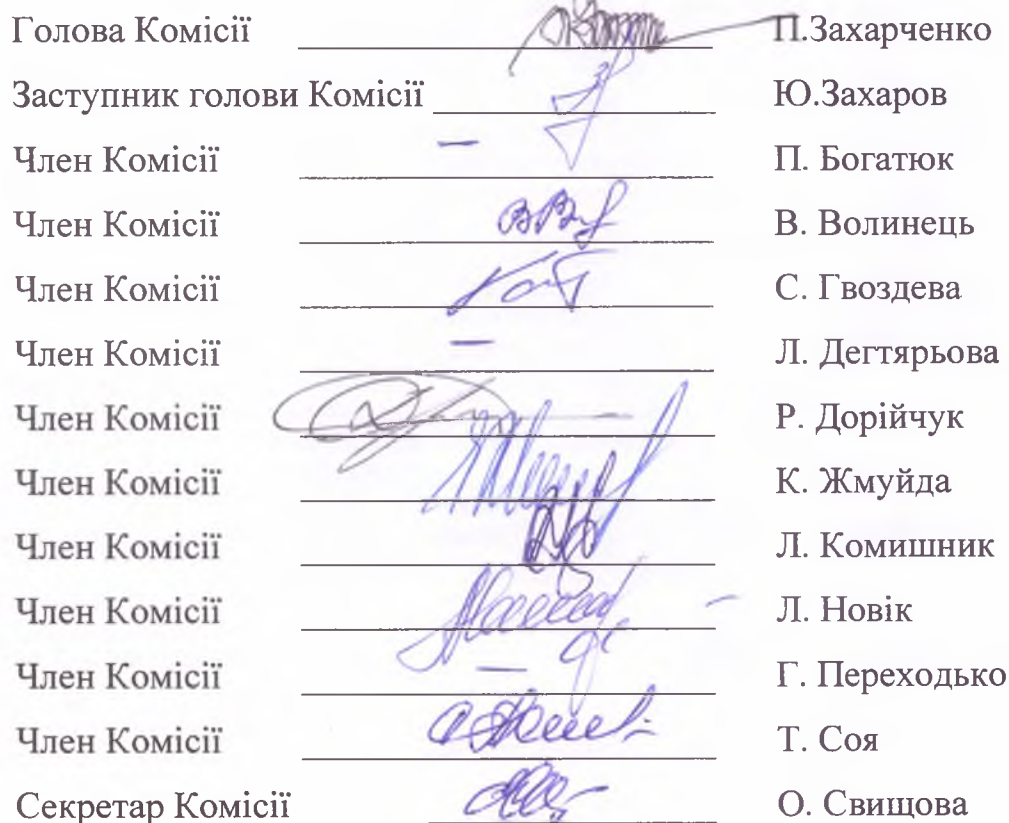 Голова Комісії П.Захарченко
Заступник голови Комісії Ю.Захаров
Член Комісії — П. Богатюк
Член Комісії В. Волинець
Член Комісії С. Гвоздева
Член Комісії — Л. Дегтярьова
Член Комісії Р. Дорійчук
Член Комісії К. Жмуйда
Член Комісії Л. Комишник
Член Комісії Л. Новік
Член Комісії — Г. Переходько
Член Комісії Т. Соя
Секретар Комісії О. Свищова